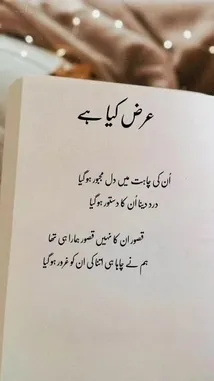 عرض کیا ہے
اُن کی چاہت میں دل مجبور ہو گیا
درد دینا اُن کا دستور ہو گیا
قصور ان کا نہیں قصور ہمارا ہی تھا
ہم نے چاہا ہی اتنا کی ان کو غرور ہو گیا